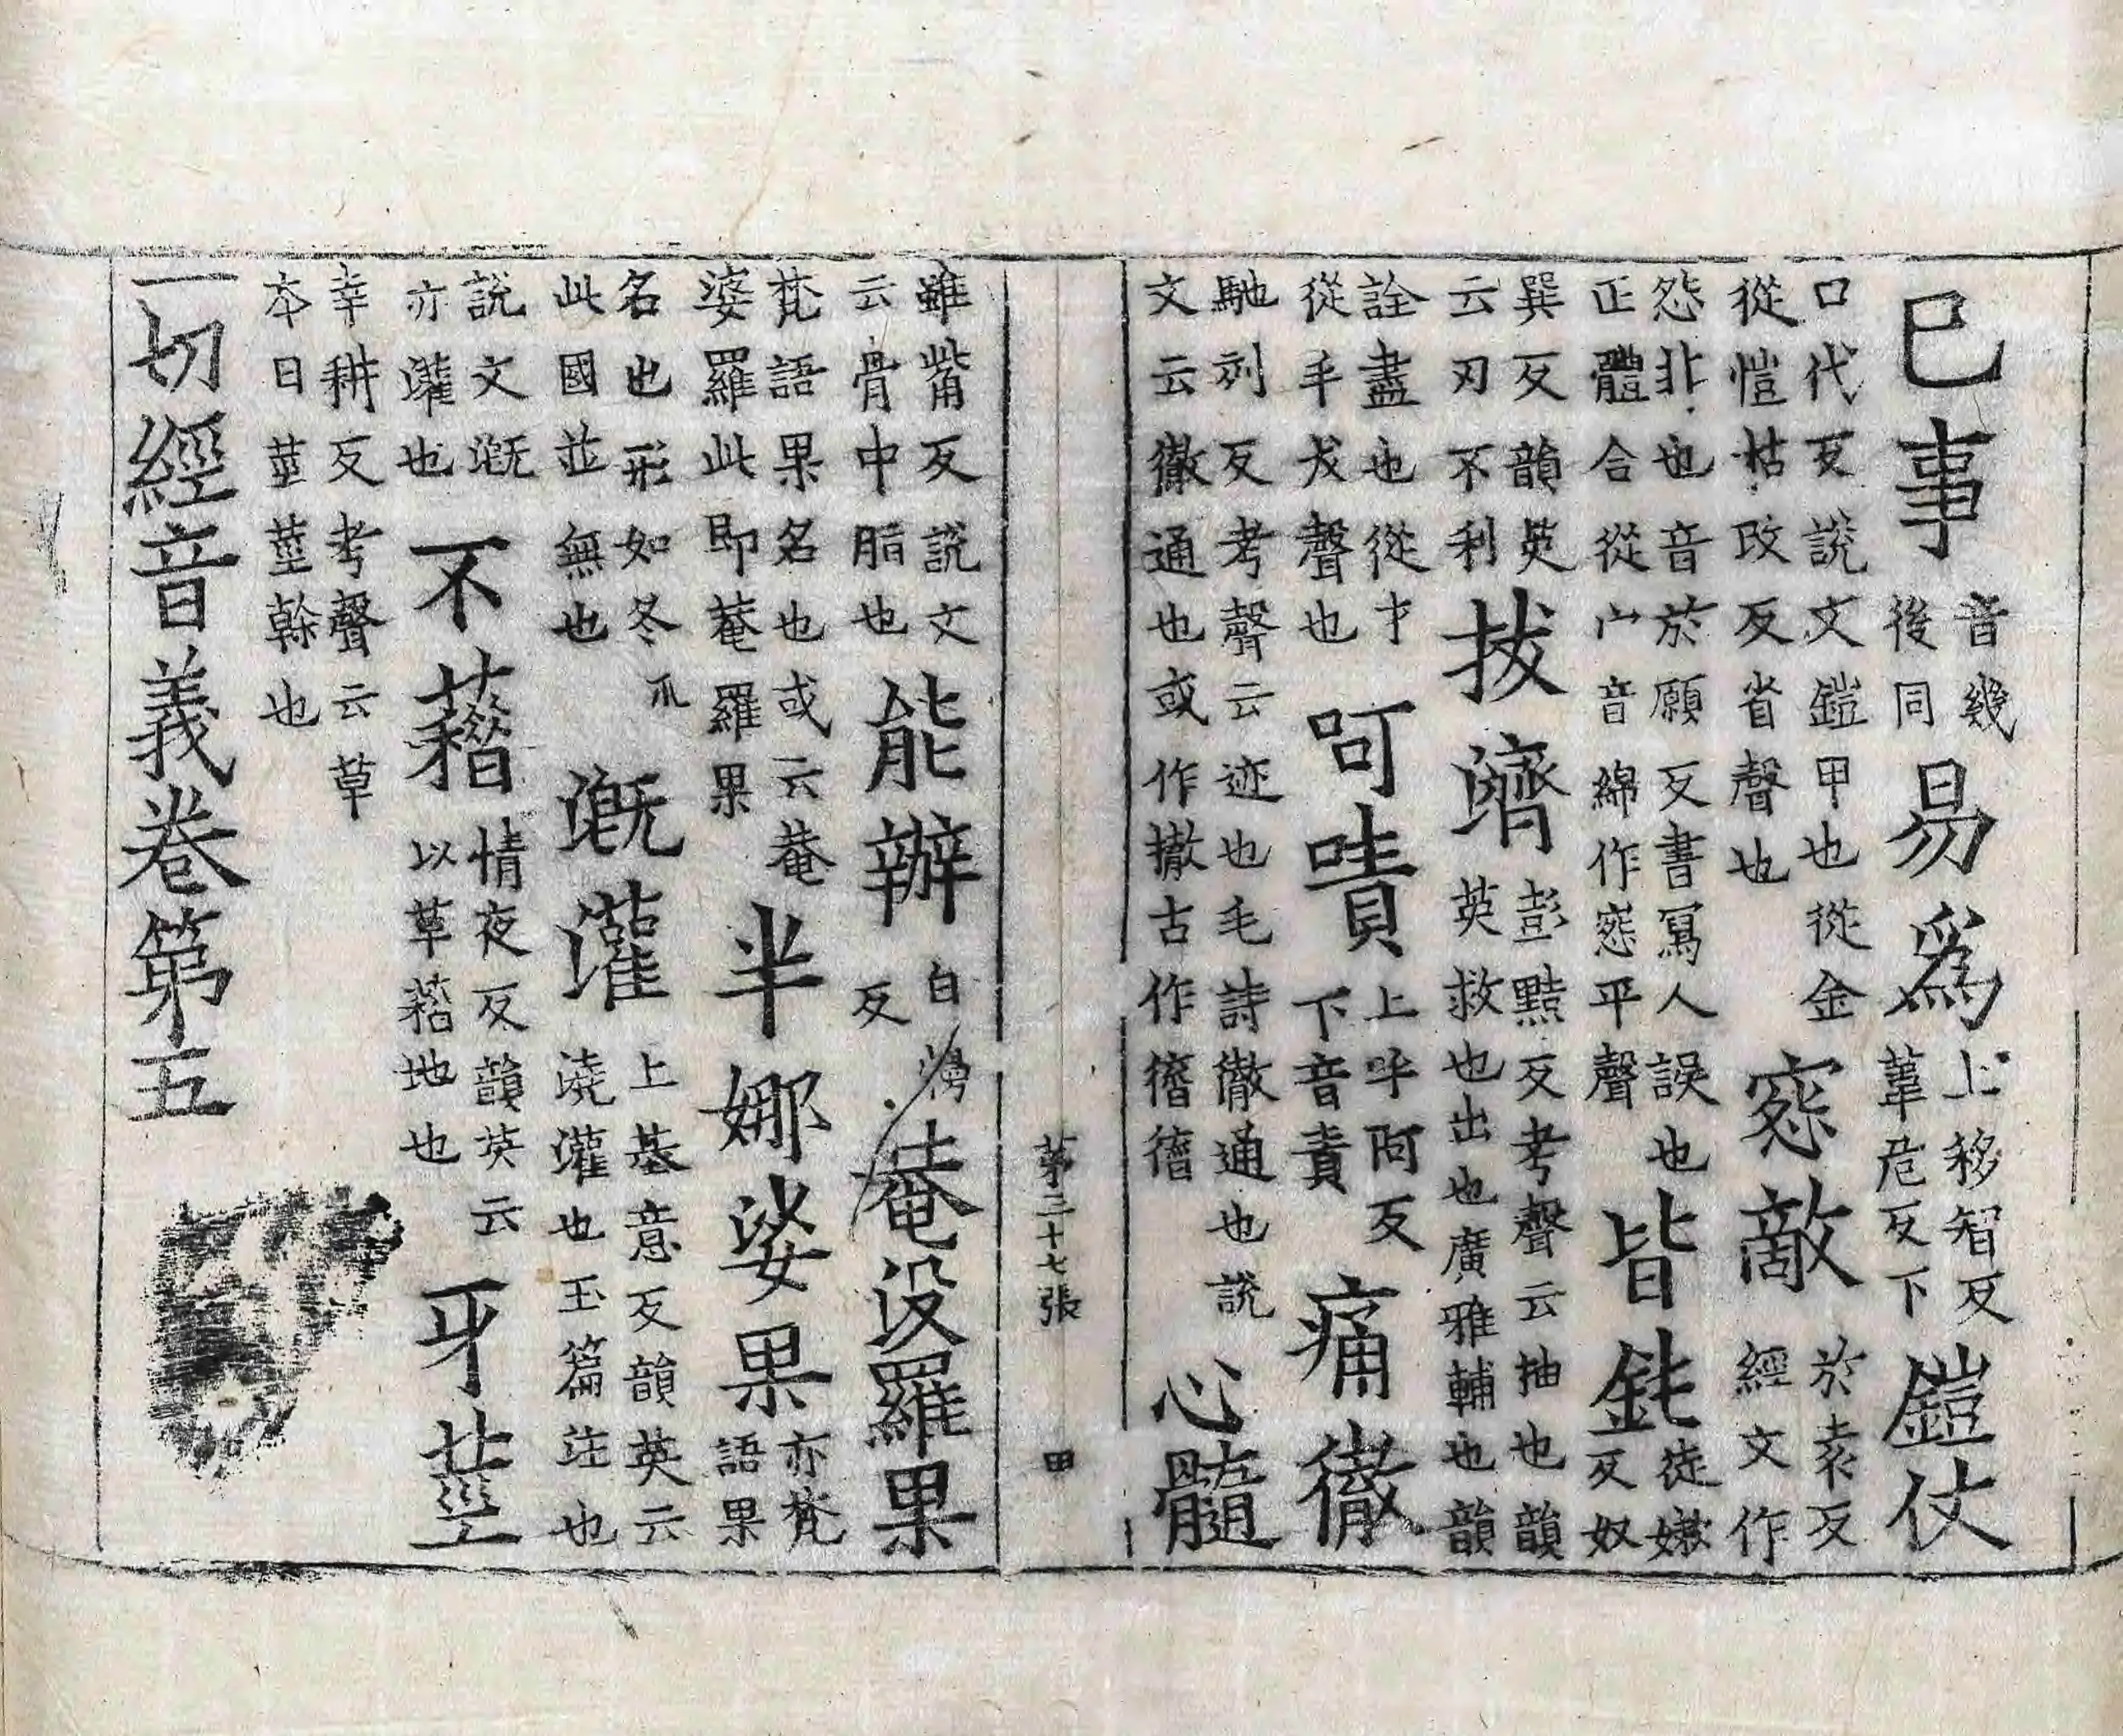 已事音幾後同易爲上移智反葦危反下鎧仗
口代反說文鎧甲也從金從愷枯改反省聲也窓敵於袁反經文作
怨非也音於願反書寫人誤也正體合從宀音綿作窓平聲皆鈍徒嫰反奴
巽反韻英云刃不利拔濟彭黠反考聲云抽也韻英救也出也廣雅輔也韻
詮盡也從扌從手犮聲也呵嘖上呼阿反下音責痛徹
馳列反考聲云迹也毛詩徹通也說文云徹通也或作撤古作心髓
第三十七張 甲
雖觜反說文云骨中脂也能辦白慢反菴没羅果
梵語果名也或云菴婆羅此即菴羅果半娜娑果亦梵語果
名也形如冬瓜此國並無也溉灌上基意反韻英云澆灌也玉篇注也
說文溉亦灌也不藉情夜反韻英云以草藉地也牙莖
幸耕反考聲云草本曰莖莖幹也
一切經音義卷第五